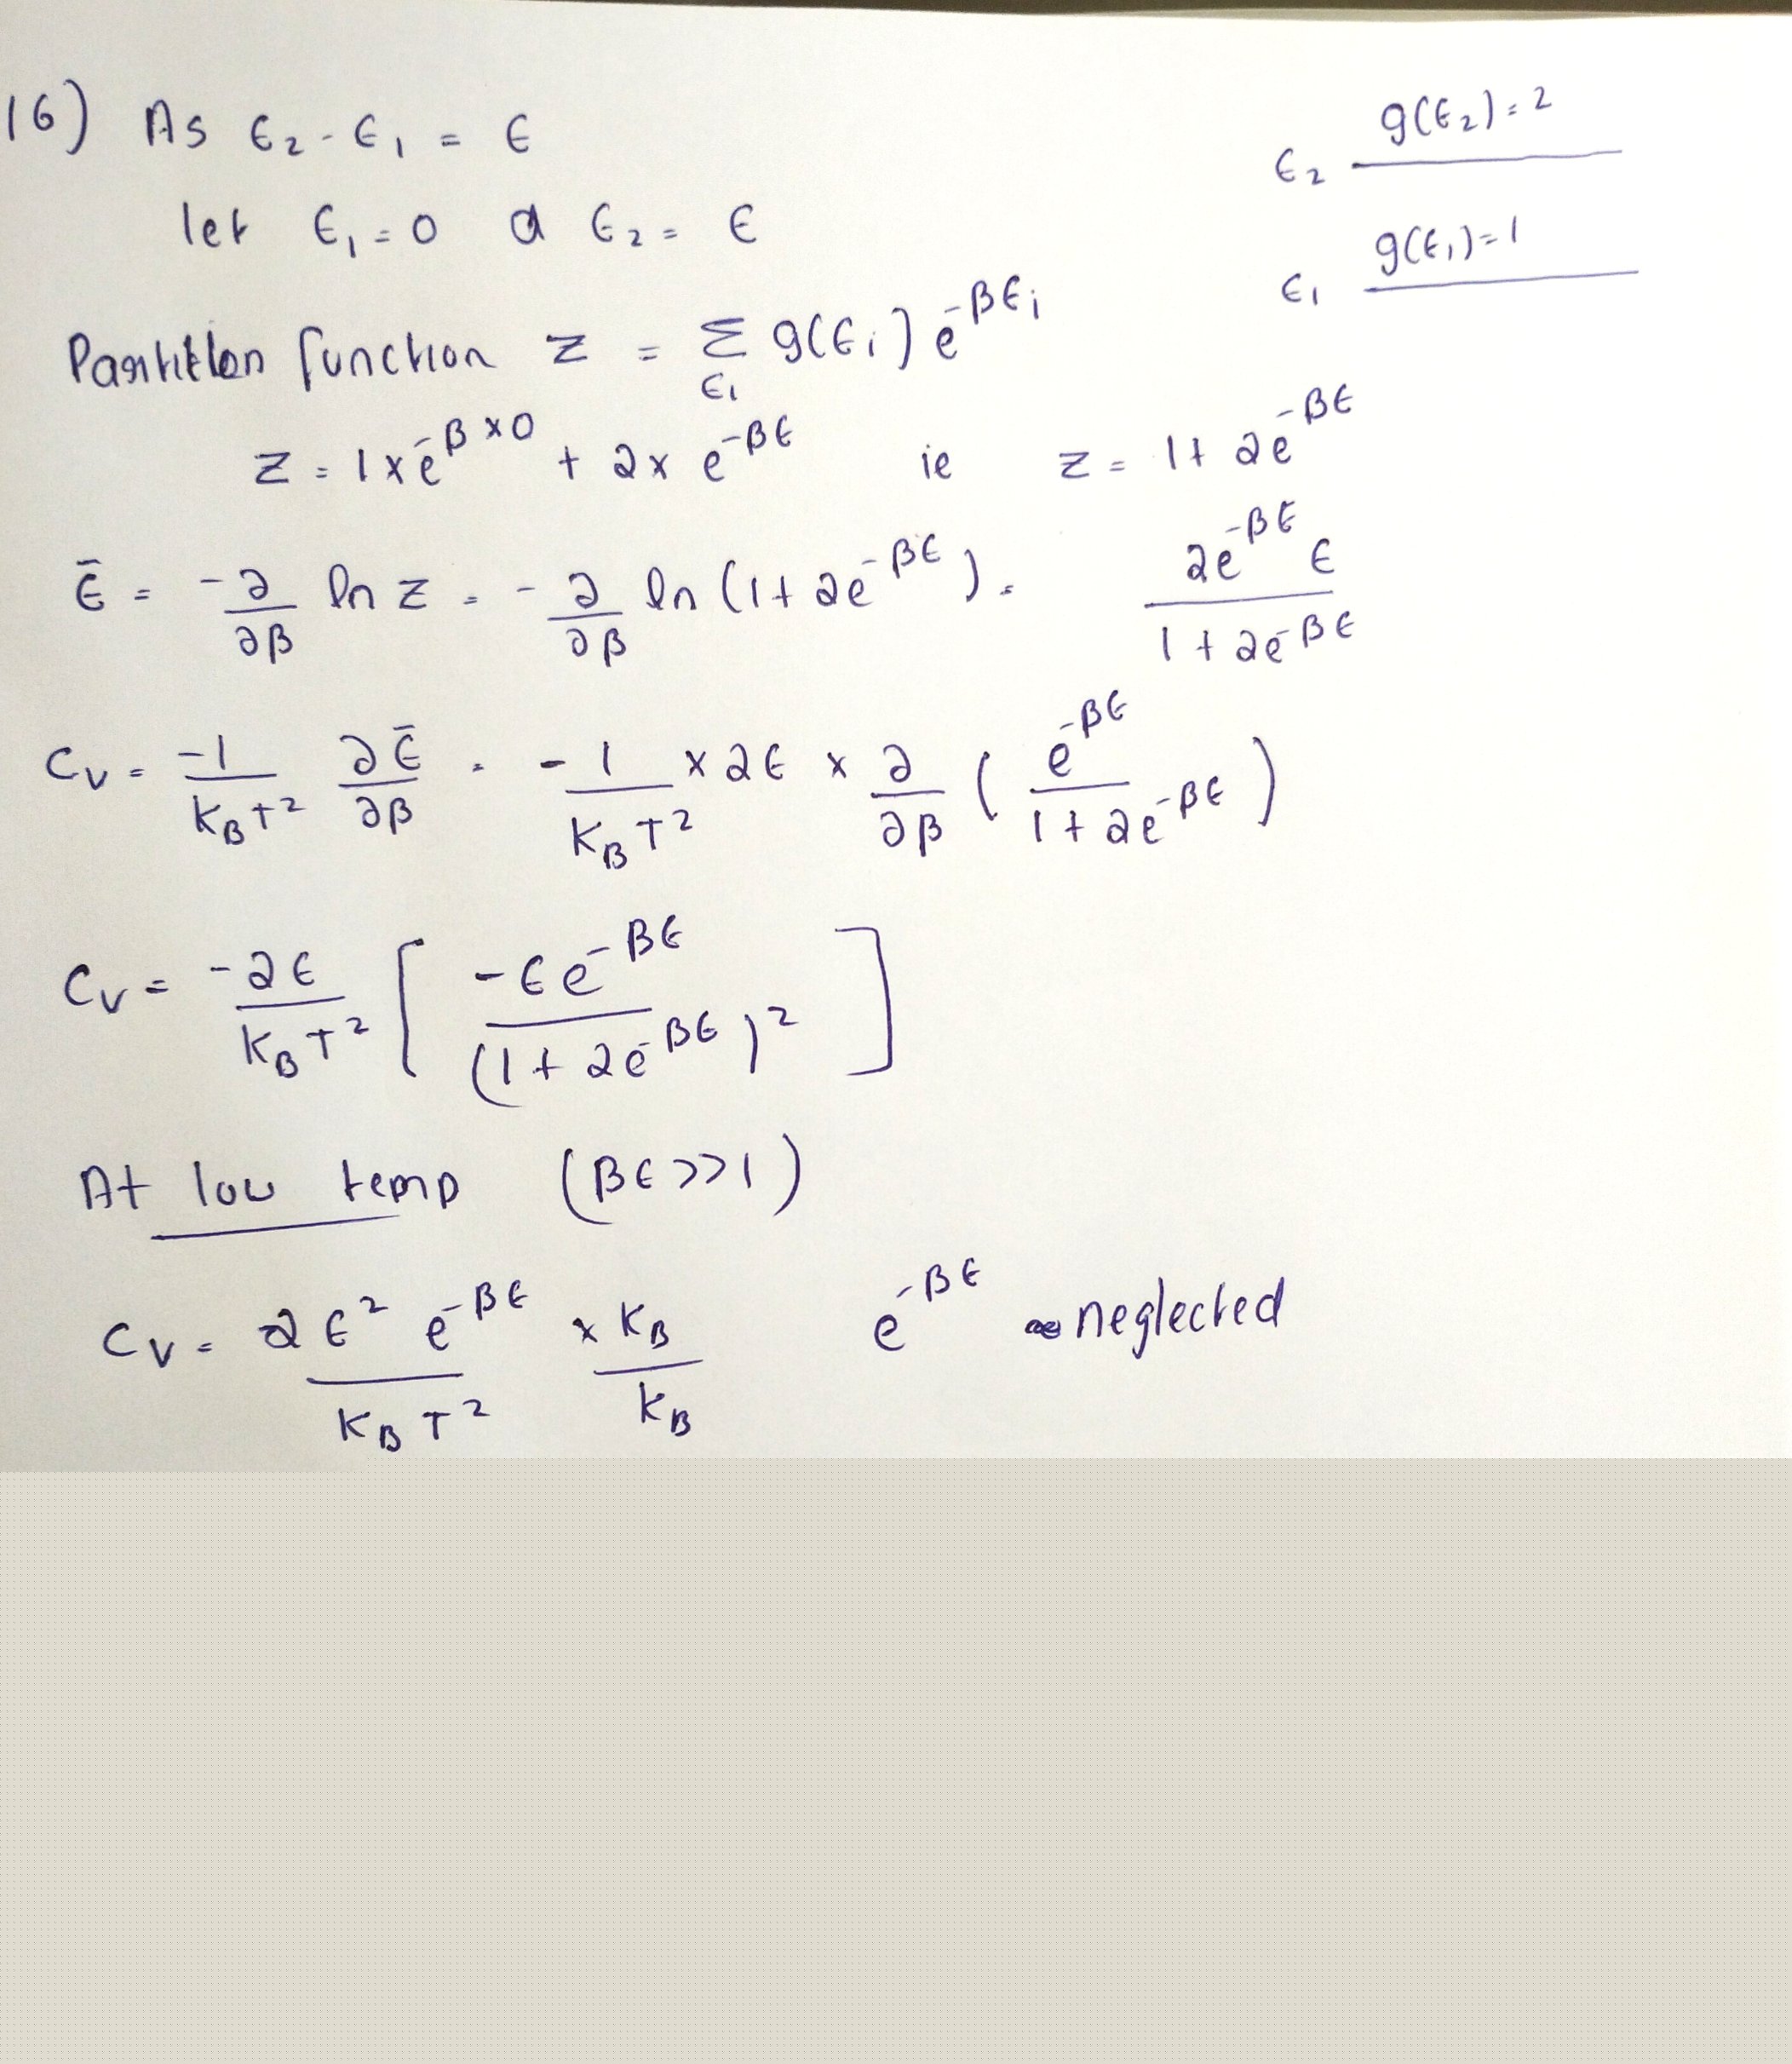 16) As ϵ₂ - ϵ₁ = ϵ
g(ϵ₂) = 2
ϵ₂
let ϵ₁ = 0 & ϵ₂ = ϵ
g(ϵ₁) = 1
ϵ₁
Partition function Z = Σ_{ϵᵢ} g(ϵᵢ) e^{-βϵᵢ}
Z = 1 × e^{-β×0} + 2 × e^{-βϵ} ie Z = 1 + 2e^{-βϵ}
ϵ̄ = -∂/∂β ln Z = -∂/∂β ln (1 + 2e^{-βϵ}) = 2e^{-βϵ} ϵ / 1 + 2e^{-βϵ}
C_V = -1/K_B T² ∂ϵ̄/∂β = -1/K_B T² × 2ϵ × ∂/∂β ( e^{-βϵ} / 1 + 2e^{-βϵ} )
C_V = -2ϵ/K_B T² [ -ϵe^{-βϵ} / (1 + 2e^{-βϵ})² ]
At low temp (βϵ >> 1)
C_V = 2ϵ² e^{-βϵ} / K_B T² × K_B/K_B e^{-βϵ} neglected